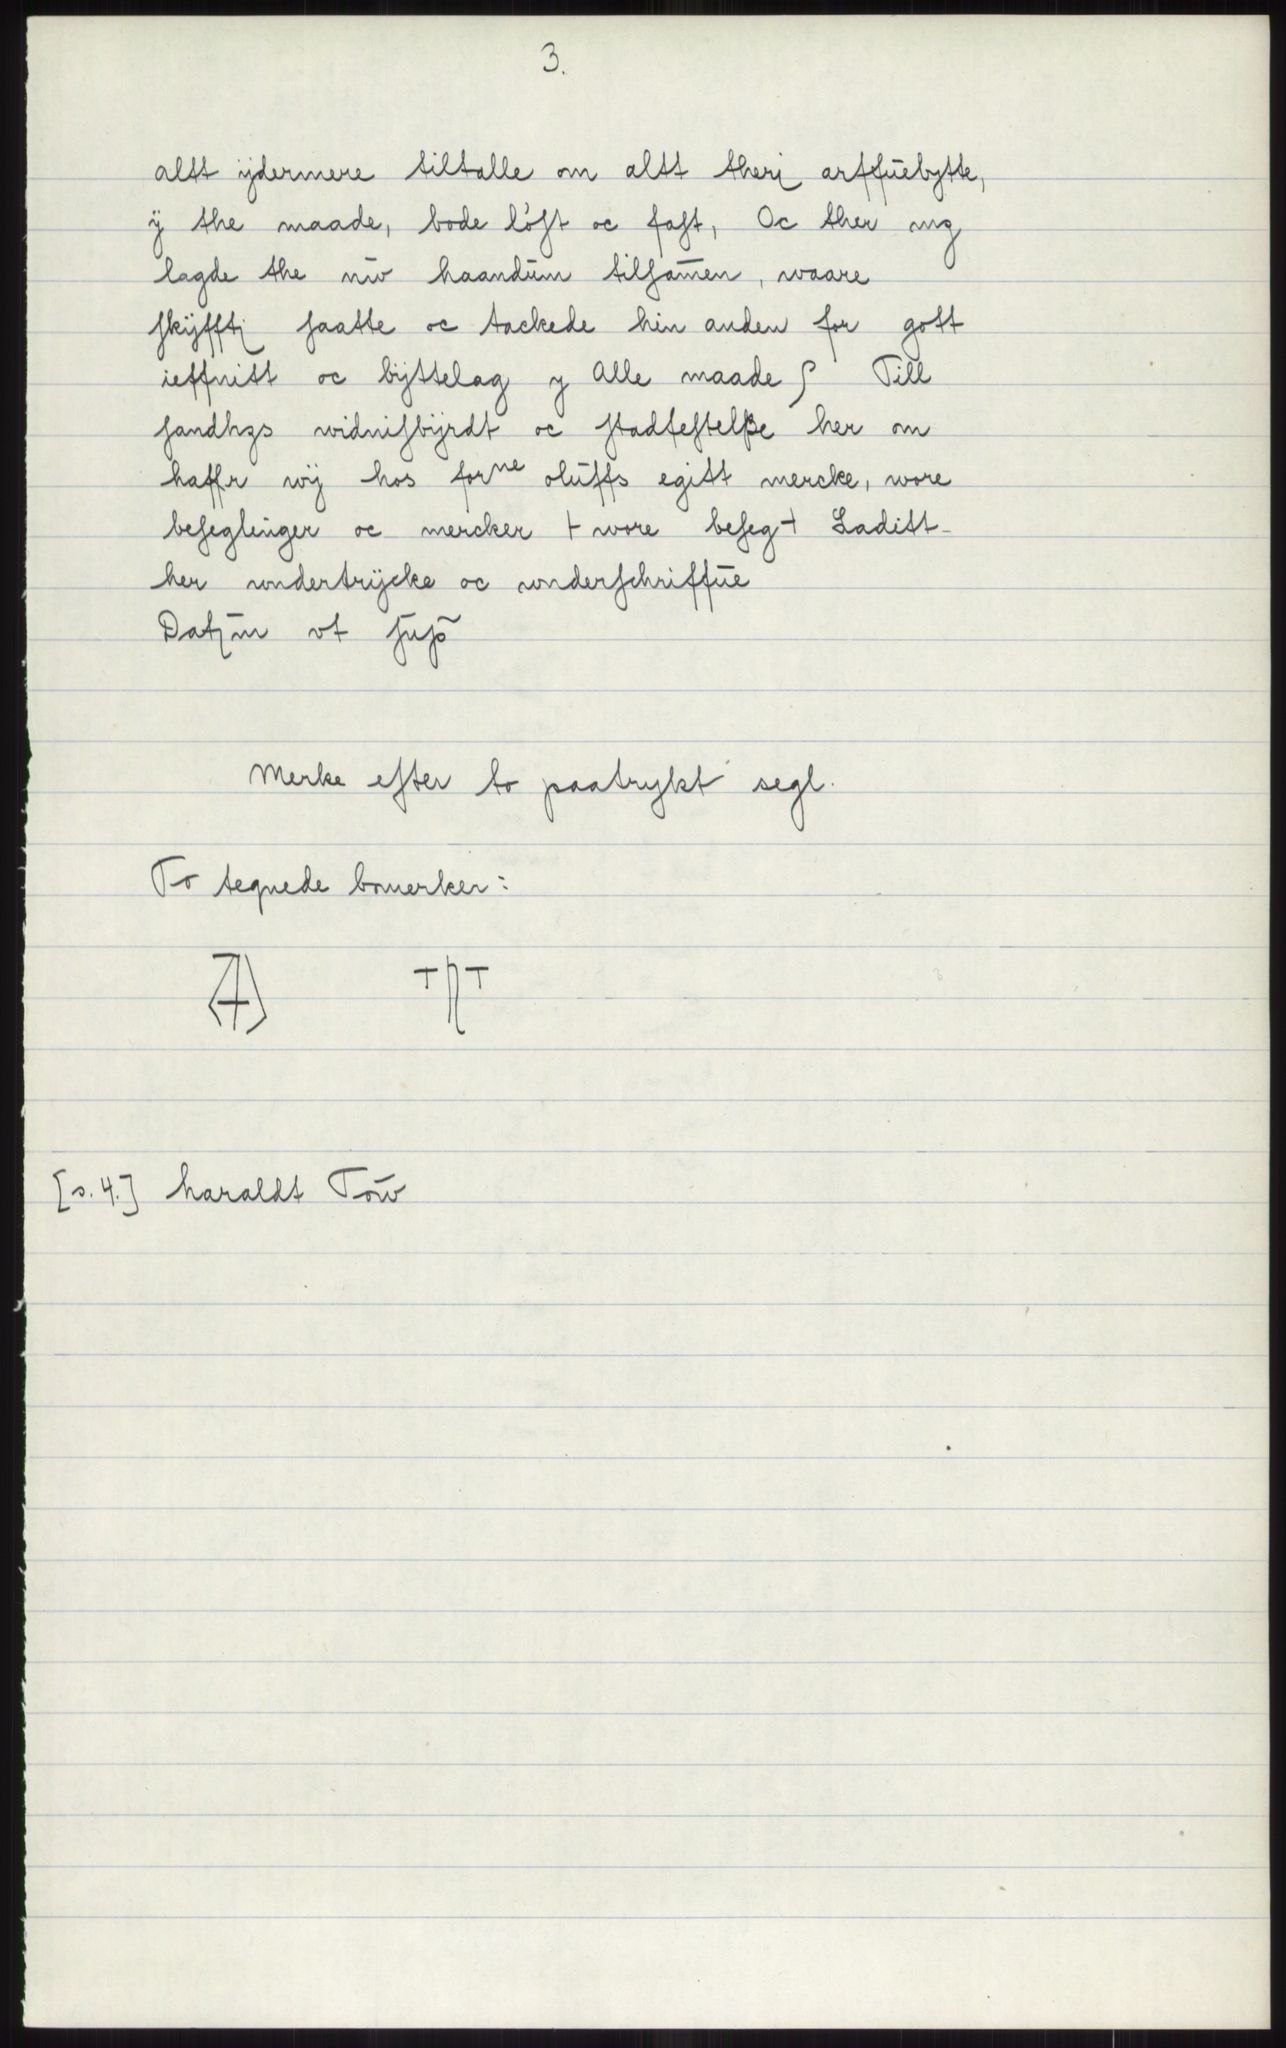 3.
altt ydermere tiltalle om altt therj arffuebytte,
ÿ the maade, bode löst oc fast, Oc ther mz
lagde the nw haandum tilsamen, waare
skÿfftj saatte oc tackede hin anden for gott
ieffnitt oc bÿttelag y Alle maade Till
sandhzs widnisbÿrdt oc stadfestelße her om
haffr wÿ hos forne oluffs egitt mercke, wore
beseglinger oc mercker + wore beseg + Laditt
her wndertrÿcke oc wnderschriffue
Datum vt sup
Merke efter to paatrykt segl.
To tegnede bomerker:
[s. 4.] haraldt Tow